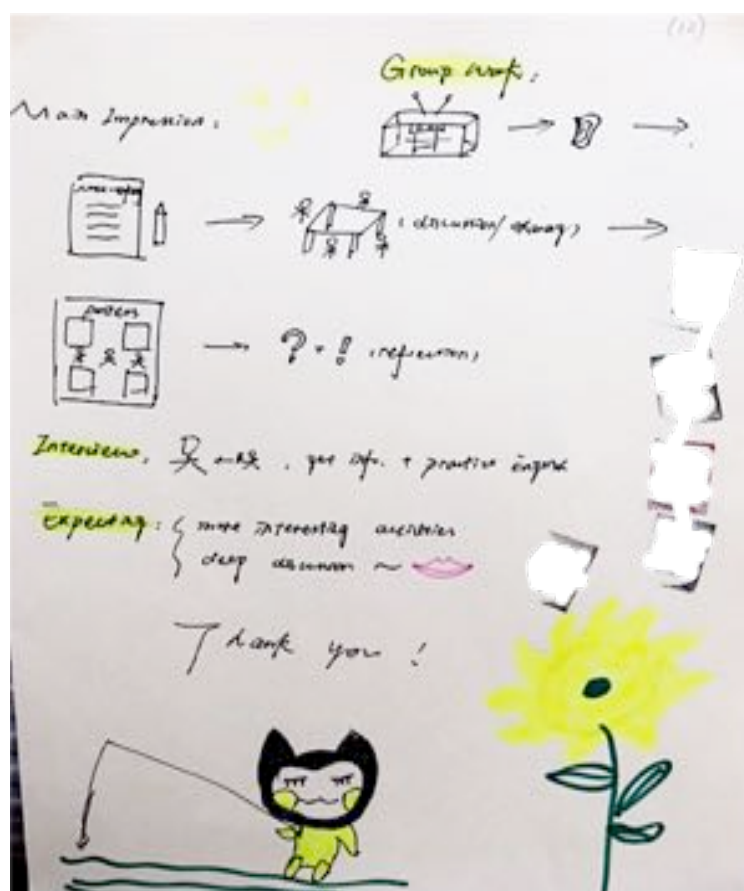 (12)
Group work:
Main Impression:
(discussion/
posters
? + ! (reflection)
Interview, get info. + practice English
Expecting: more interesting activities
deep discussion ~
Thank you!